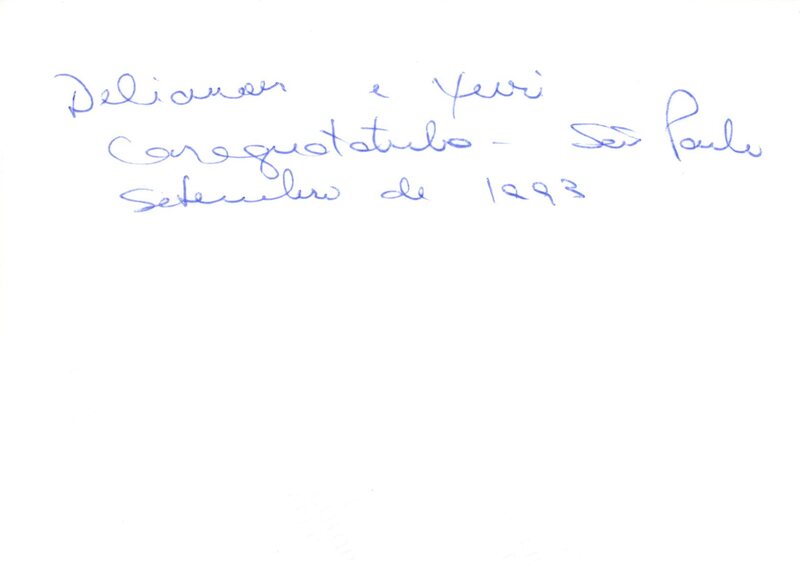 Delianan e Yuri
Caraguatatuba - São Paulo
Setembro de 1993